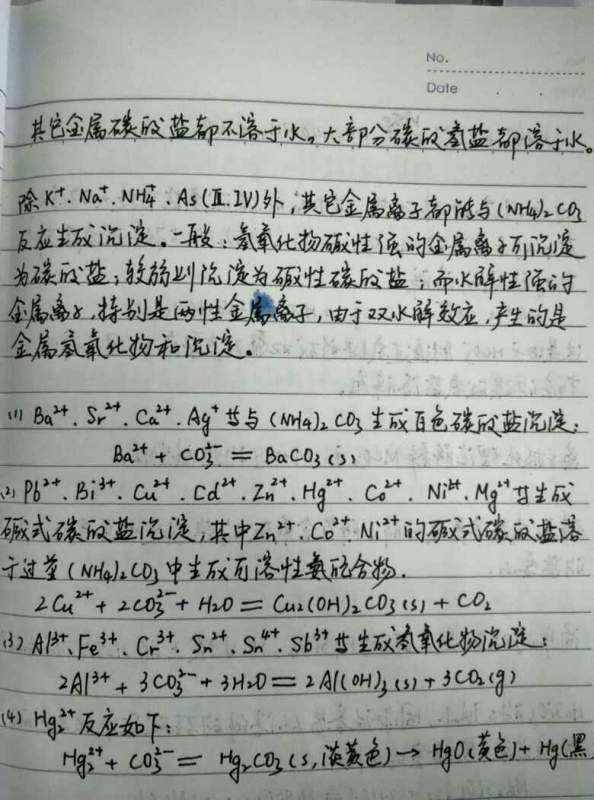 No.
Date
其它金属碳酸盐都不溶于水。大部分碳酸氢盐都溶于水。
除K⁺、Na⁺、NH₄⁺、As(III、IV)外,其它金属离子都能与(NH₄)₂CO₃
反应生成沉淀。一般:氢氧化物碱性强的金属离子可沉淀
为碳酸盐;较弱则沉淀为碱性碳酸盐;而水解性强的
金属离子,特别是两性金属离子,由于双水解效应,产生的是
金属氢氧化物和沉淀。
(1) Ba²⁺、Sr²⁺、Ca²⁺、Ag⁺等与(NH₄)₂CO₃生成白色碳酸盐沉淀:
Ba²⁺ + CO₃²⁻ = BaCO₃(s)
(2) Pb²⁺、Bi³⁺、Cu²⁺、Cd²⁺、Zn²⁺、Hg²⁺、Co²⁺、Ni²⁺、Mg²⁺等生成
碱式碳酸盐沉淀,其中Zn²⁺、Co²⁺、Ni²⁺的碱式碳酸盐溶
于过量(NH₄)₂CO₃中生成可溶性氨配合物.
2Cu²⁺ + 2CO₃²⁻ + H₂O = Cu₂(OH)₂CO₃(s) + CO₂
(3) Al³⁺、Fe³⁺、Cr³⁺、Sn²⁺、Sn⁴⁺、Sb³⁺等生成氢氧化物沉淀:
2Al³⁺ + 3CO₃²⁻ + 3H₂O = 2Al(OH)₃(s) + 3CO₂(g)
(4) Hg₂²⁺反应如下:
Hg₂²⁺ + CO₃²⁻ = Hg₂CO₃(s,淡黄色) → HgO(黄色) + Hg(黑